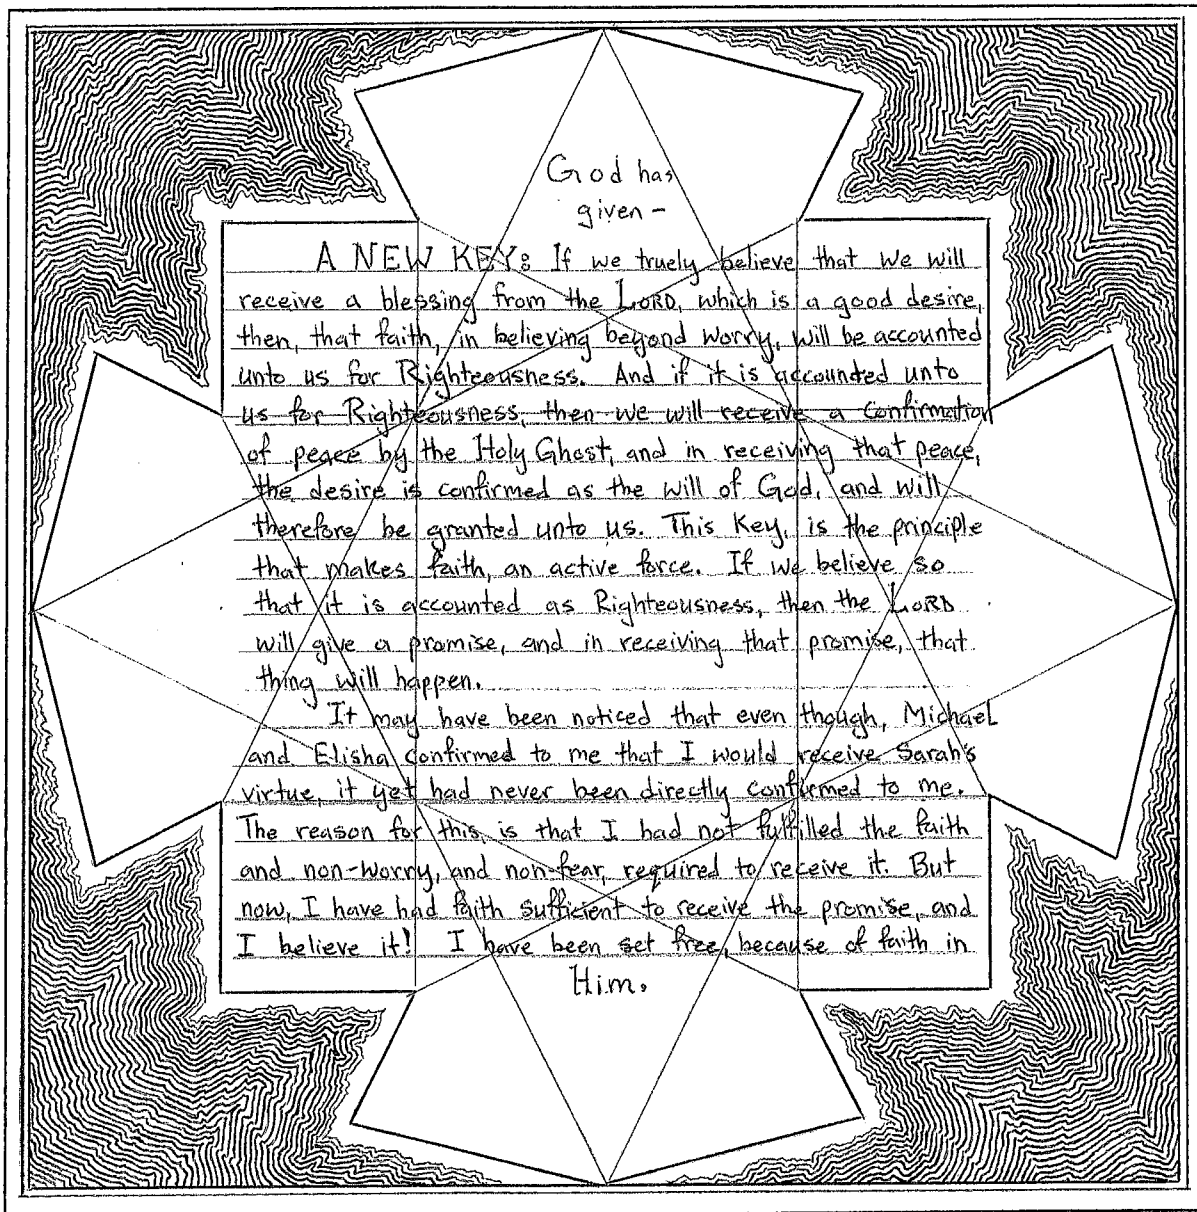 God has
given -
A NEW KEY: If we truely believe that we will
receive a blessing from the LORD, which is a good desire,
then, that faith, in believing beyond worry, will be accounted
unto us for Righteousness. And if it is accounted unto
us for Righteousness, then we will receive a confirmation
of peace by the Holy Ghost, and in receiving that peace,
the desire is confirmed as the will of God, and will
therefore be granted unto us. This Key, is the principle
that makes faith, an active force. If we believe so
that it is accounted as Righteousness, then the LORD
will give a promise, and in receiving that promise, that
thing will happen.
It may have been noticed that even though, Michael
and Elisha confirmed to me that I would receive Sarah's
virtue, it yet had never been directly confirmed to me.
The reason for this, is that I had not fulfilled the faith
and non-worry, and non-fear, required to receive it. But
now, I have had faith sufficient to receive the promise, and
I believe it! I have been set free, because of faith in
Him.